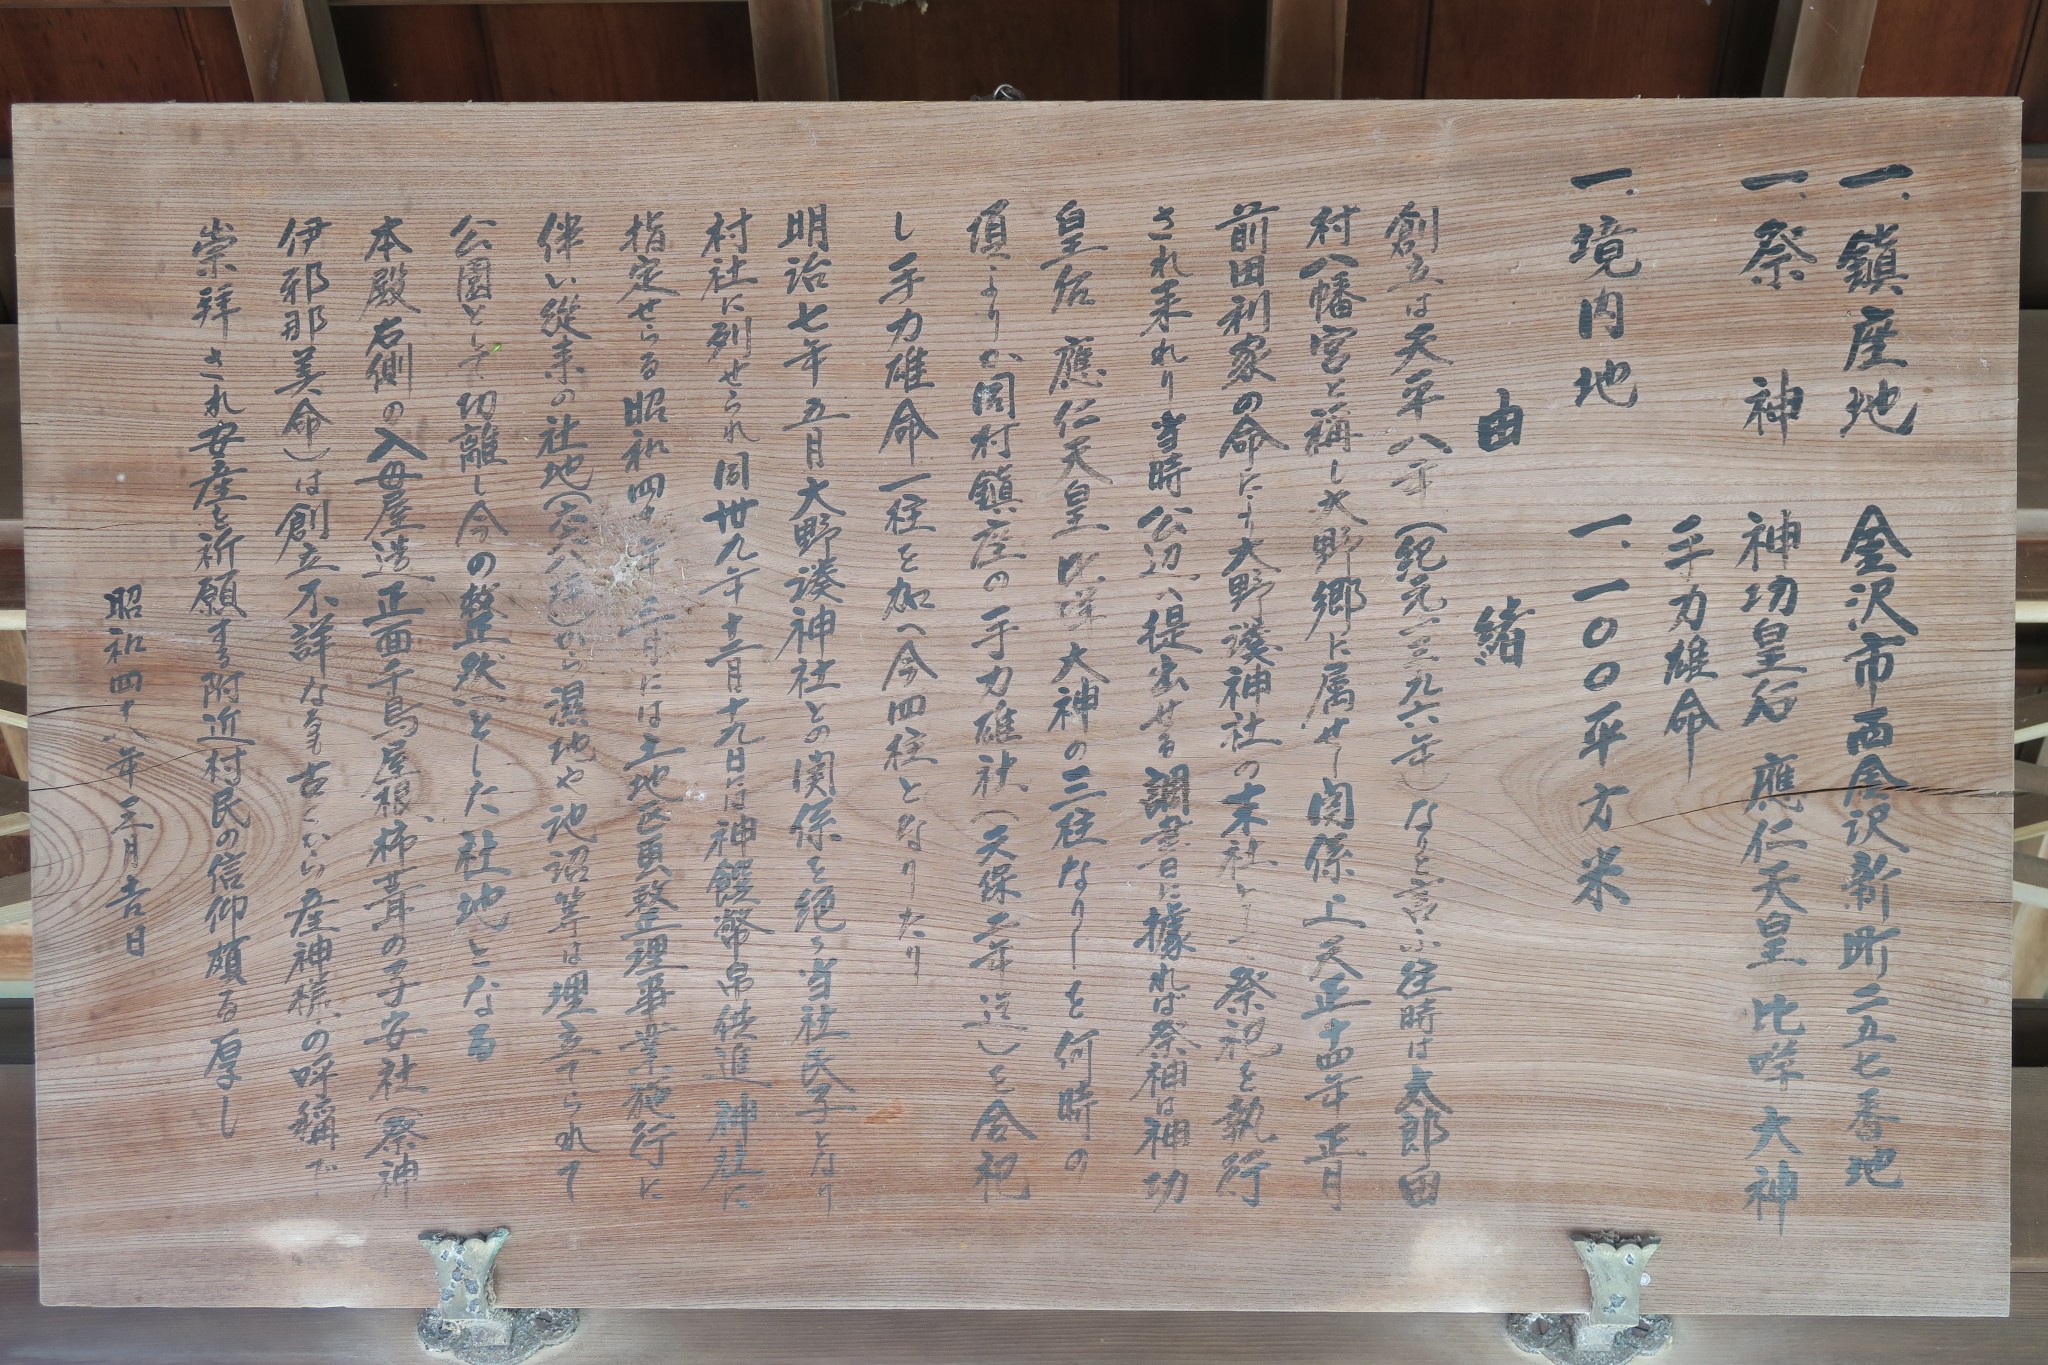 一、鎮座地 金沢市西金沢新町二五七番地
一、祭神 神功皇后 應仁天皇 比咩大神
手力雄命
一、境内地 一、一〇〇平方米
由緒
創立は天平八年(紀元一三九六年)なりと言ふ往時は太郎田
村八幡宮と稱し大野郷に属せし関係上天正十四年正月
前田利家の命により大野湊神社の末社として祭祀を執行
され来れり当時公辺へ提出せる調書に據れば祭神は神功
皇后 應仁天皇 比咩大神の三柱なりしを何時の
頃よりか同村鎮座の手力雄社(天保二年造)を合祀
し手力雄命一柱を加へ今四柱となりたり
明治七年五月大野湊神社との関係を絶ち当社氏子となり
村社に列せられ同卅九年十二月十九日には神饌幣帛供進神社に
指定せらる昭和四十年三月には土地区画整理事業施行に
伴い従来の社地(六六八坪)から濕地や池沼等は埋立てられて
公園として切離し今の整然とした社地となる
本殿右側の入母屋造正面千鳥屋根、柿葺の子安社(祭神
伊邪那美命)は創立不詳なるも古くから産神様の呼稱で
崇拝され安産を祈願する附近村民の信仰頗る厚し
昭和四十八年三月吉日